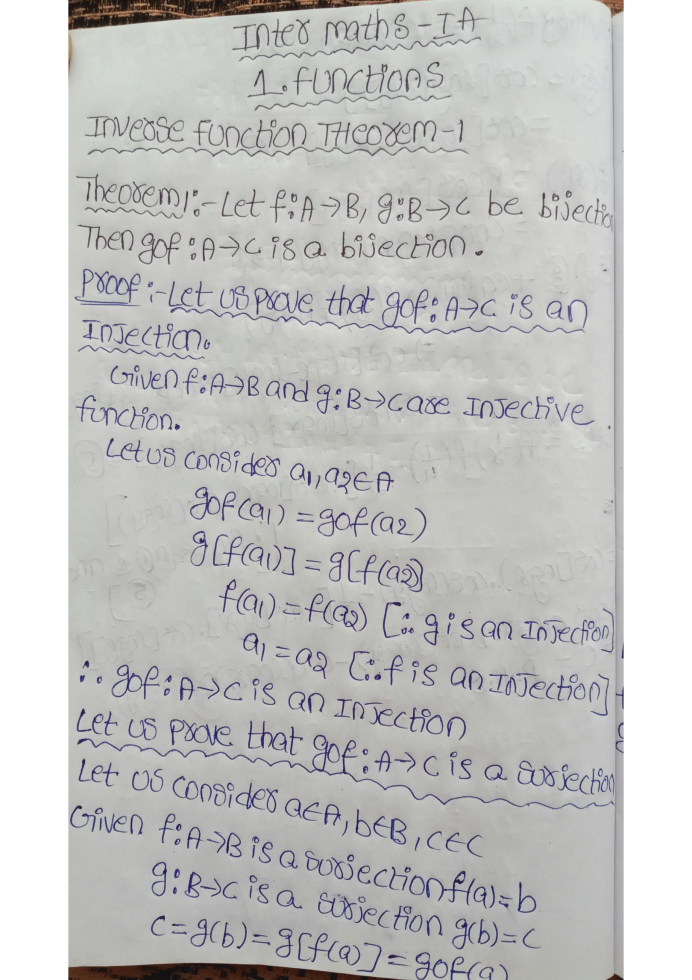 Inter maths-IA
1. functions
Inverse function THeorem-1
Theorem1:- Let f:A→B, g:B→C be bijectio
Then gof:A→C is a bijection.
Proof:- Let us prove that gof:A→C is an
Injection.
Given f:A→B and g:B→C are Injective
function.
Let us consider a1, a2∈A
gof(a1) = gof(a2)
g[f(a1)] = g[f(a2)]
f(a1) = f(a2) [∵ g is an Injection]
a1 = a2 [∵ f is an Injection]
∴ gof:A→C is an Injection
Let us prove that gof:A→C is a surjection
Let us consider a∈A, b∈B, c∈C
Given f:A→B is a surjection f(a)=b
g:B→C is a surjection g(b)=c
c=g(b)=g[f(a)]=gof(a)